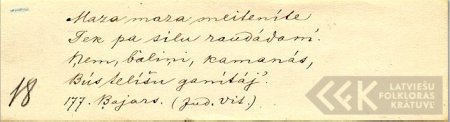 Maza maza meitenite
Tek pa silu raudádamí.
Ņem, báliņi, kamanás,
Bús telišu ganitáj'.
177. Bajars. (Jud. Vit.)
18
LATVIEŠU
FOLKLORAS
KRĀTUVE